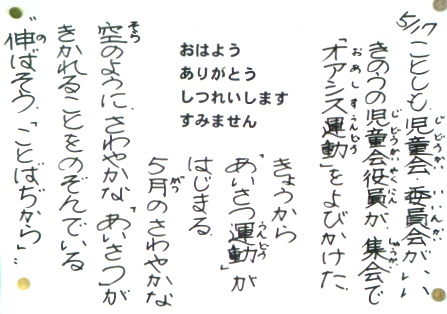 5/17
ことしも児童会、委員会がいい
きのうの児童会役員が、集会で
「オアシス運動」をよびかけた。
おはよう
ありがとう
しつれいします
すみません
きょうから
「あいさつ運動」が
はじまる。
5月のさわやかな
空のように、さわやかな「あいさつ」が
きかれることをのぞんでいる
"伸ばそう「ことばぢから」"